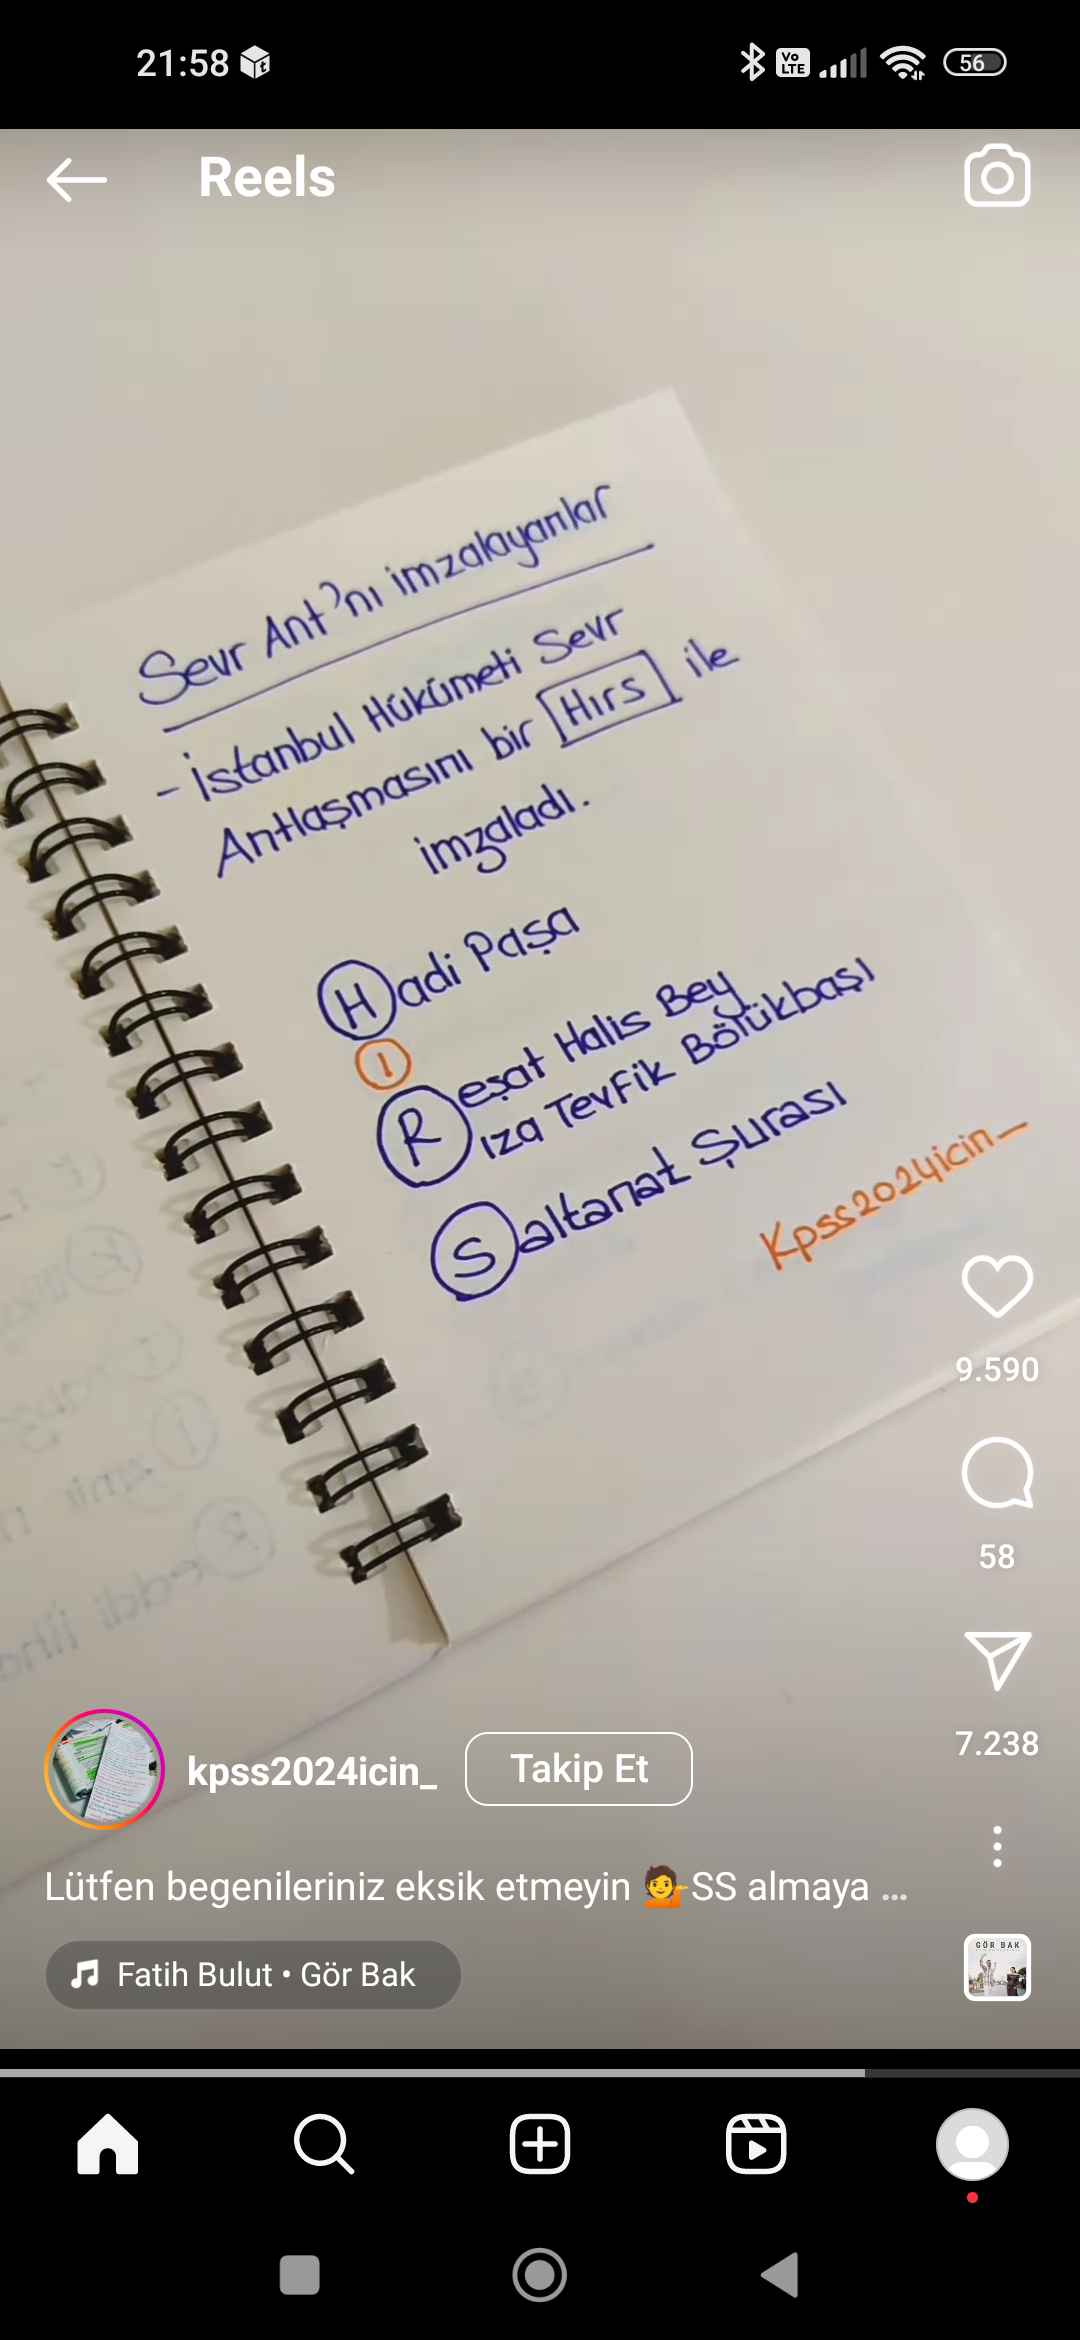 21:58
Vo
LTE
56
Reels
Sevr Ant'nı imzalayanlar
- İstanbul Hükümeti Sevr
Antlaşmasını bir Hırs ile
imzaladı.
Hadi Paşa
I
Reşat Halis Bey
ıza Tevfik Bölükbaşı
Saltanat Şurası
Kpss2024icin_
9.590
58
7.238
kpss2024icin_
Takip Et
Lütfen begenileriniz eksik etmeyin 💁SS almaya ...
Fatih Bulut • Gör Bak
GÖR BAK